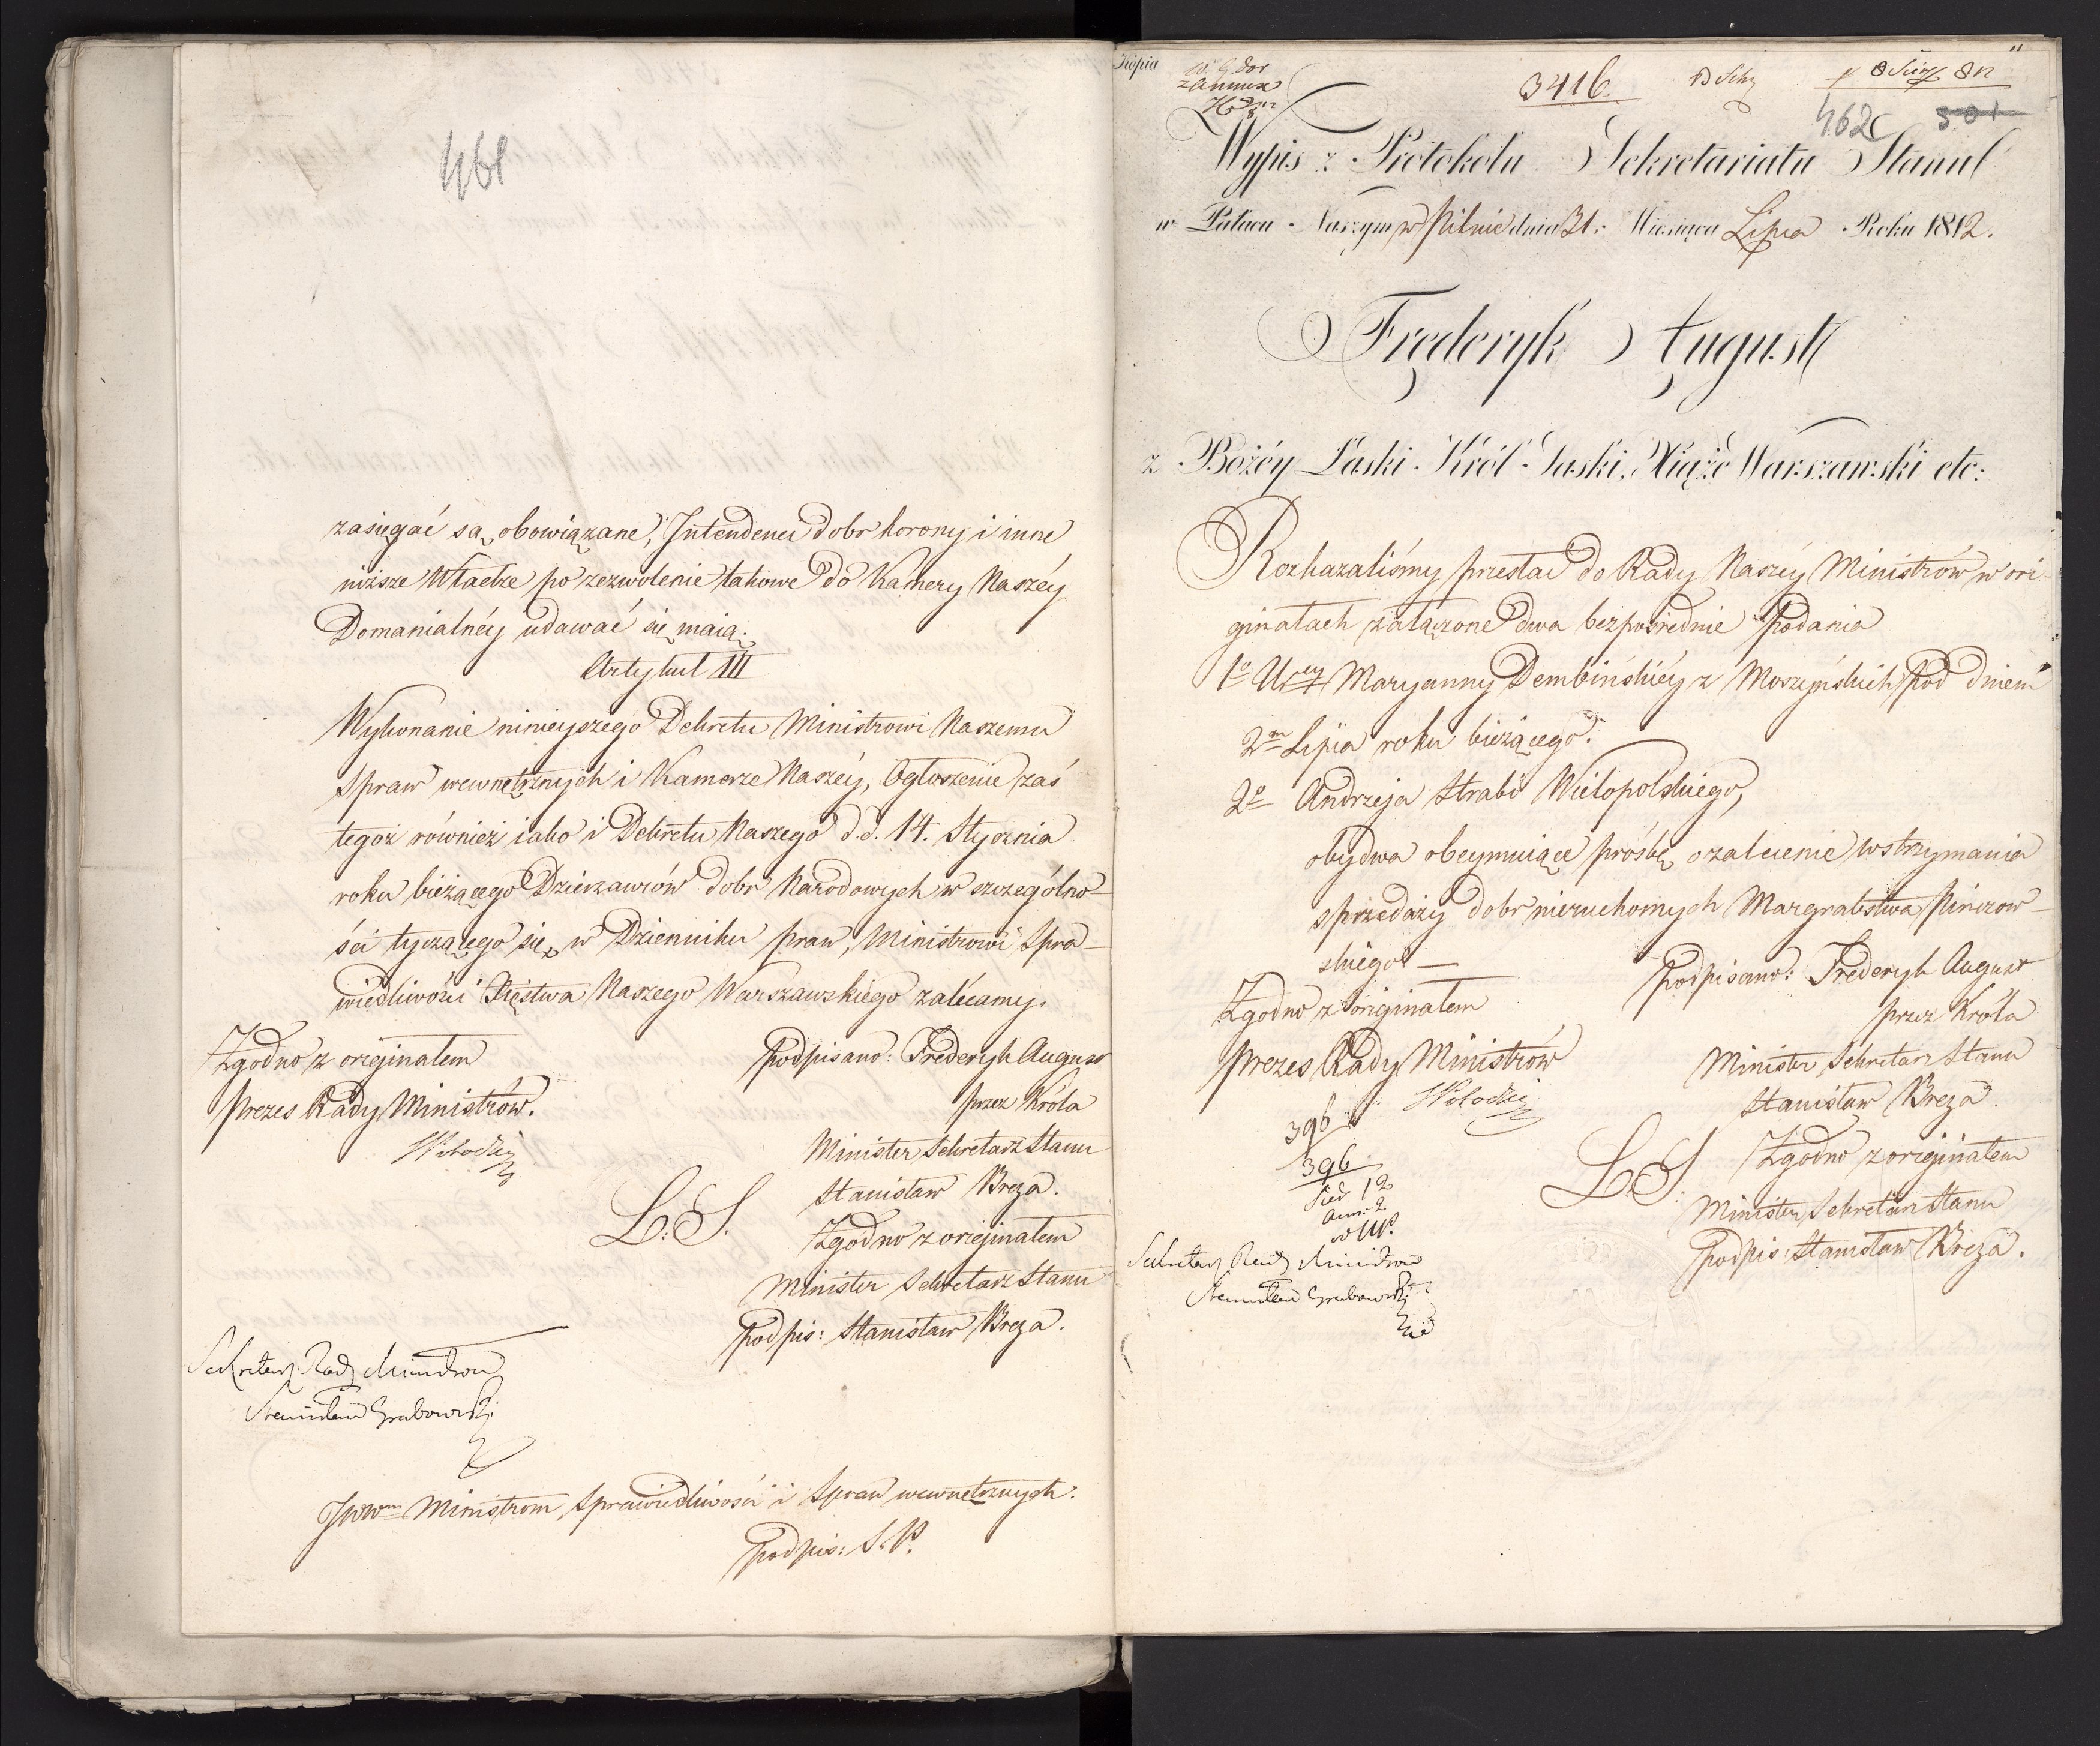 461
zasięgać są obowiązane, Intendenci dobr korony i inne
niższe Władze po zezwolenie takowe do Kamery Naszéy
Domanialnéy udawać się maią.
Artykuł III
Wykonanie ninieyszego Dekretu Ministrowi Naszemu
Spraw wewnętrznych i Kamerze Naszéy, Ogłoszenie zaś
tegoż również iako i Dekretu Naszego d.d. 14. Stycznia
roku bieżącego Dzierzawców dobr Narodowych w szczególno-
ści tyczącego się, w Dzienniku praw, Ministrowi Spra-
wiedliwości Xięstwa Naszego Warszawskiego zalécamy.
Zgodno z orieginałem
Podpisano: Frederyk August
Prezes Rady Ministrów.
przez Króla
Minister Sekretarz Stanu
Stanisław Breza.
L.S.
Zgodno z orieginałem
Minister Sekretarz Stanu
podpis: Stanisław Breza.
Sekretarz Rady Ministrow
Stanisław Grabowski
JWWm Ministrom Sprawiedliwości i Spraw wewnętrznych.
podpis: S.P.
Kopia
z Annex
3416.
462 501
Wypis z Protokołu Sekretariatu Stanu
w Pałacu Naszym w Pilnic dnia 31. Miesiąca Lipca Roku 1812.
Fryderyk August
z Bożéy Łaski Król Saski, Xiąże Warszawski etc:
Rozkazaliśmy przesłać do Rady Naszéy Ministrów w ori-
ginałach załączone dwa bezpośrednie Podania
1o Urey Maryanny Dembińskiéy z Moszyńskich pod dniem
2m Lipca roku bieżącego.
2o Andrzeja Hrabi Wielopolskiego,
obydwa obeymuiące prośbę o zalecenie wstrzymania
sprzedaży dobr nieruchomych Margrabstwa Pińczow-
skiego —
Zgodno z originałem
Podpisano: Frederyk August
przez Króla
Prezes Rady Ministrów
Minister Sekretarz Stanu
Stanisław Breza.
396
396
L.S.
Zgodno z orieginałem
Minister Sekretarz Stanu
podpis: Stanisław Breza.
Sekretarz Rady Ministrow
Stanisław Grabowski